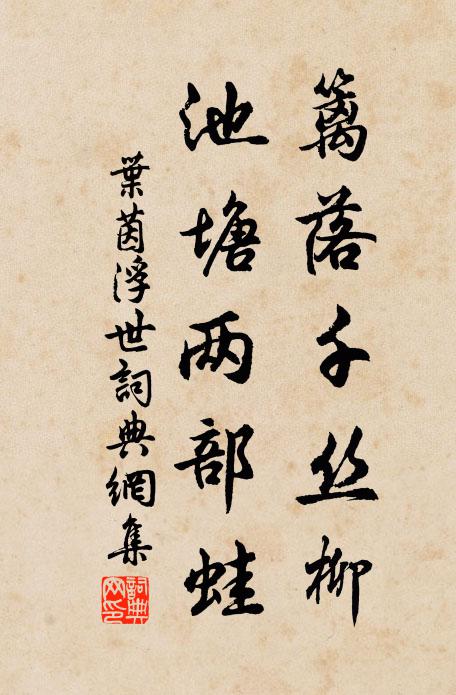 篱落千丝柳
池塘两部蛙
葉茵浮世詞典網集
詞典網印